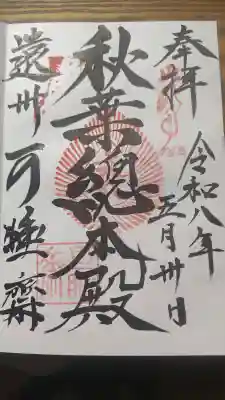 奉拝
令和八年
五月卅日
秋葉總本殿
遠州可睡齋